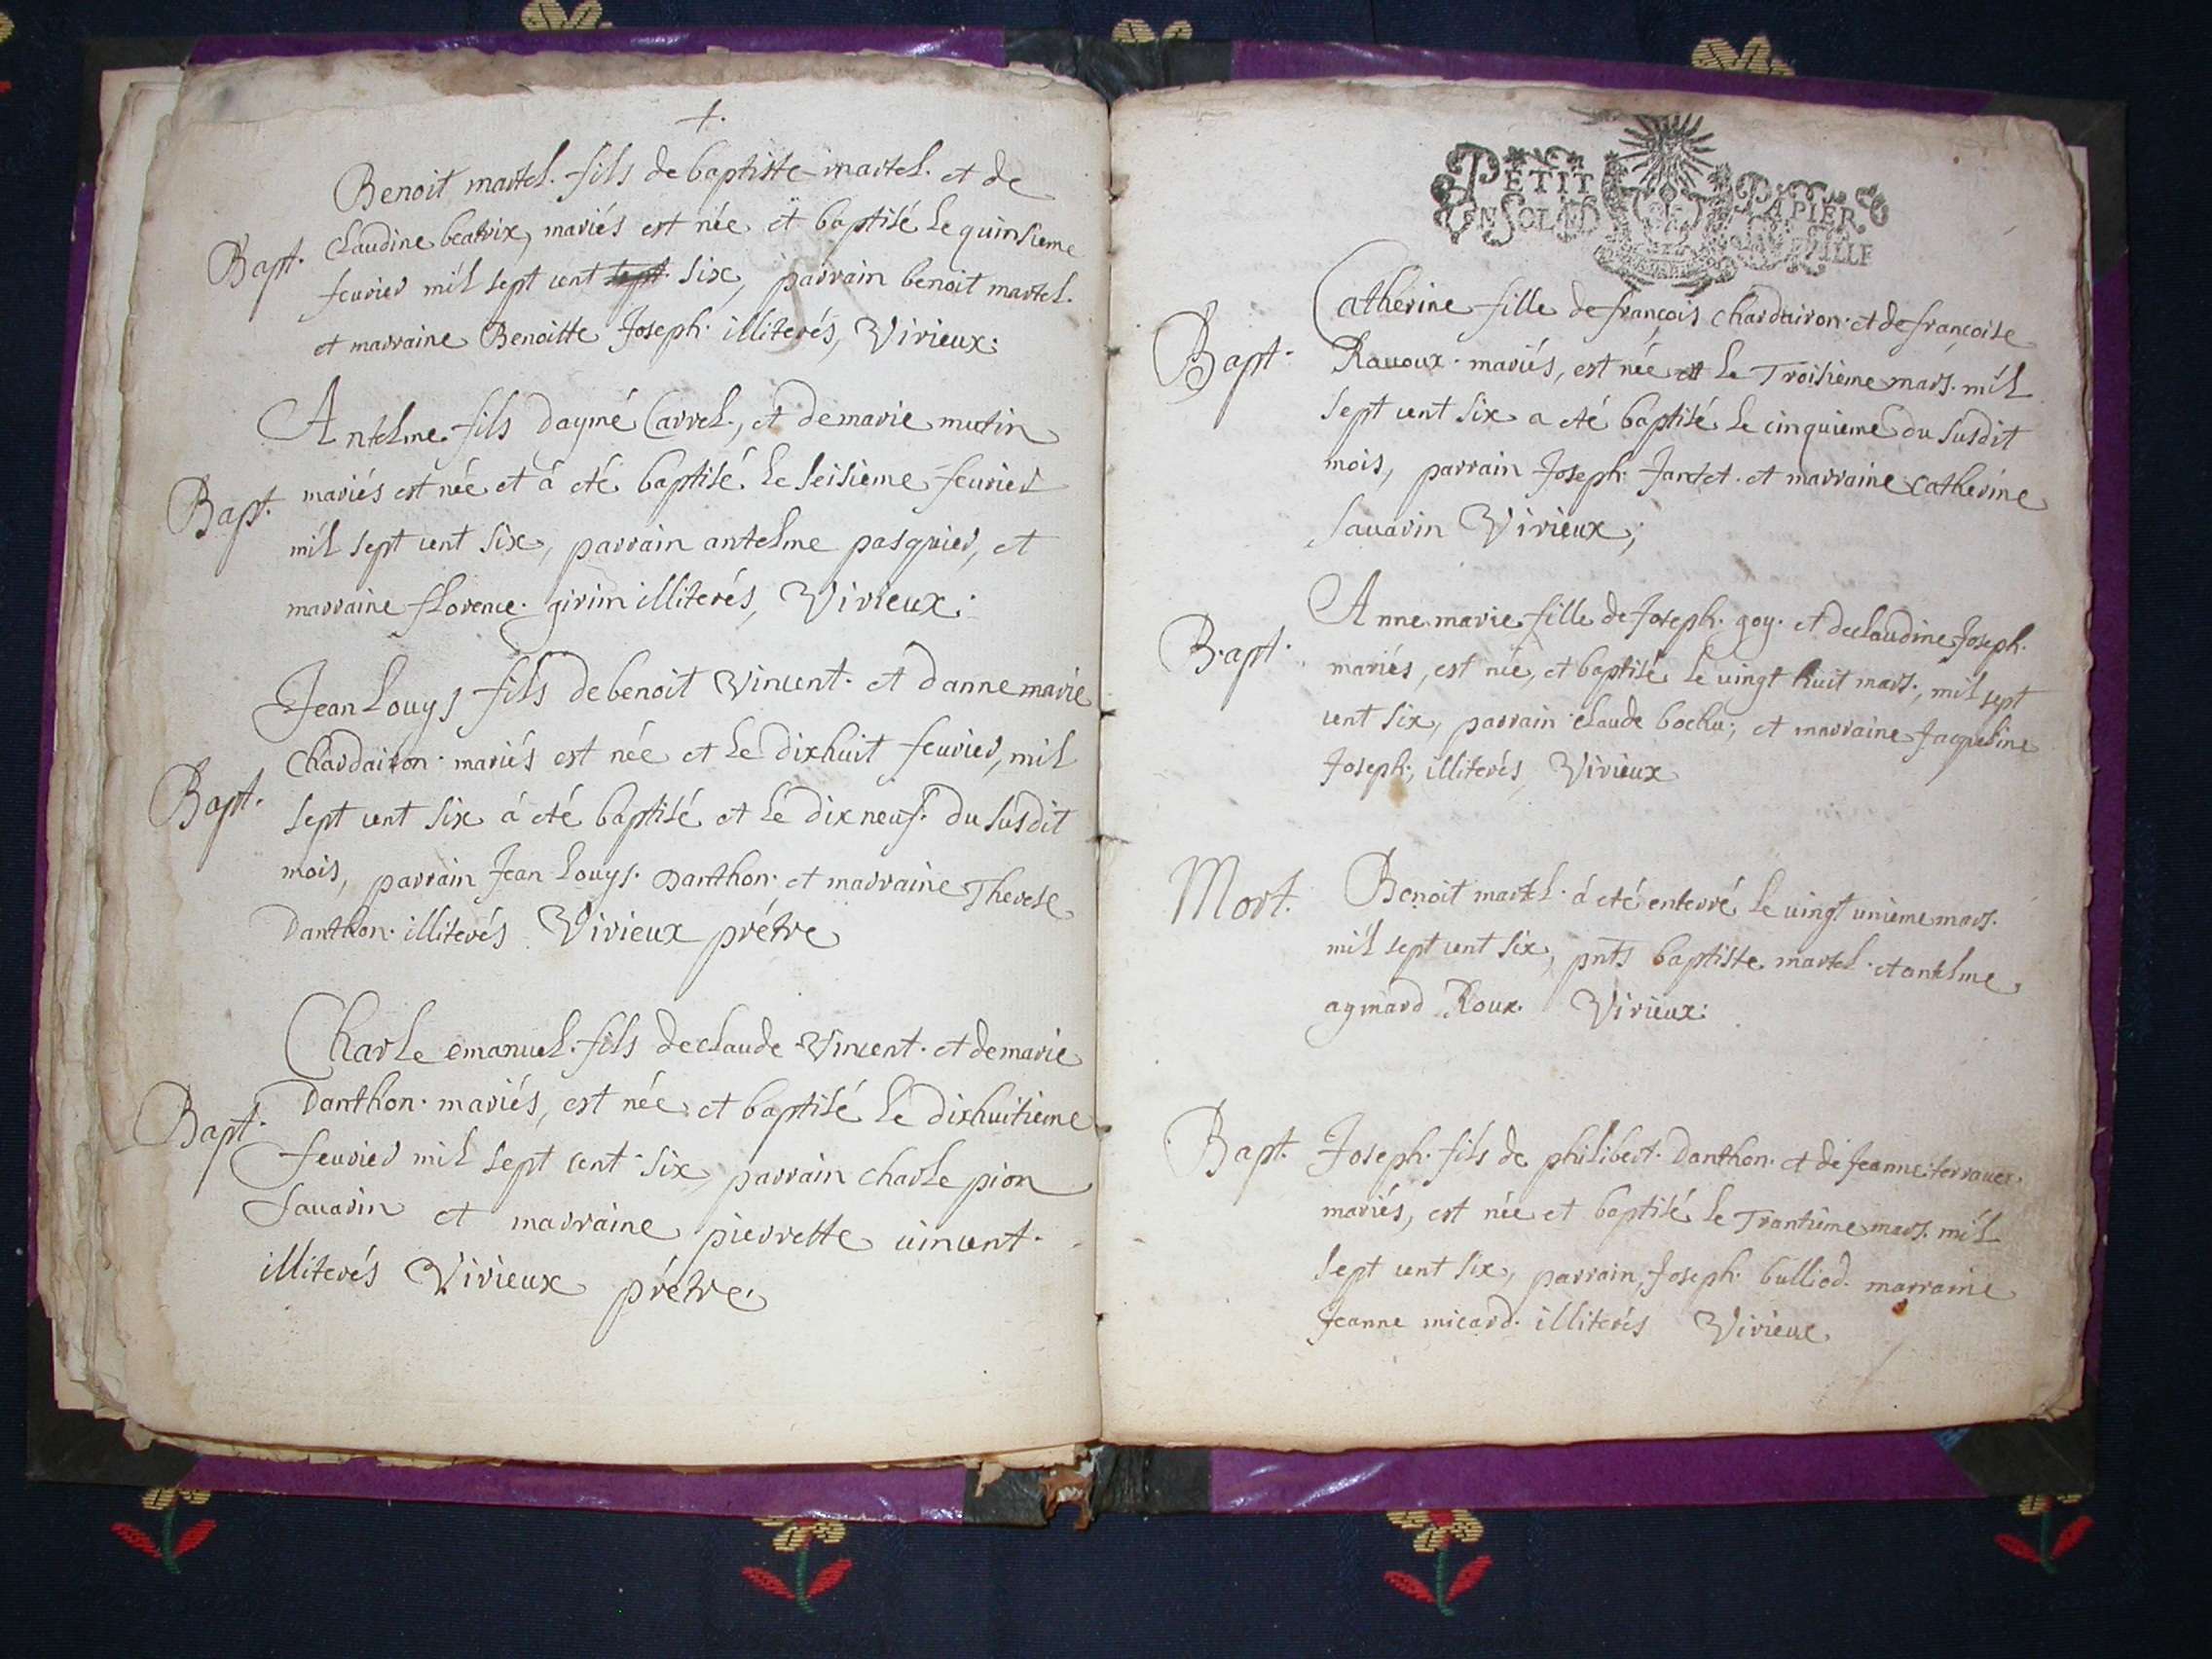 +.
Benoit martel. fils de baptiste martel. et de
Bapt. claudine beatrix, mariés est née et baptisé le quinsieme
feurier mil sept cent sept six, parrain benoit martel.
et marraine Benoitte Joseph. illiterés, Virieux:
Antelme fils daymé Carrel., et de marie mutin
Bapt. mariés est née et á eté baptisé le seisieme feurier
mil sept cent six, parrain antelme pasquier, et
marraine florence. girin illiterés, Virieux.
Jean Louys fils de benoit Vincent. et danne marie
chardairon. mariés est née et le dixhuit feurier, mil
Bapt. sept cent six á eté baptisé et le dix neuf. du susdit
mois, parrain Jean Louys. Danthon. et marraine Therese
Danthon. illiterés Virieux prétre
Charle emanuel. fils de claude Vincent. et de marie
Bapt. Danthon. mariés, est née et baptisé le dixhuitieme
feurier mil sept cent six, parrain charle pion
Sauarin et marraine pierrette uincent.
illiterés Virieux prétre.
PETIT PAPIER
UN SOL
Catherine fille de françois chardairon. et de françoise
Bapt. Rauoux. mariés, est née et le Troisième mars. mil
sept cent six a eté baptisé le cinquieme du susdit
mois, parrain Joseph. Jantet. et marraine catherine
Sauarin Virieux,
Anne marie fille de Joseph. goy. et de claudine Joseph.
Bapt. mariés, est née, et baptisé le uingt huit mars., mil sept
cent six, parrain claude bochu; et marraine Jacqueline
Joseph; illiterés, Virieux
Mort. Benoit martel. á eté enterré le uingt unieme mars.
mil sept cent six, pnts baptiste martel. et antelme
aymard Roux. Virieux:
Bapt. Joseph. fils de philibert. Danthon. et de Jeanne
mariés, est née et baptisé le Trantieme mars. mil
sept cent six, parrain, Joseph. bulliod. marraine
Jeanne micard. illiterés Virieux.